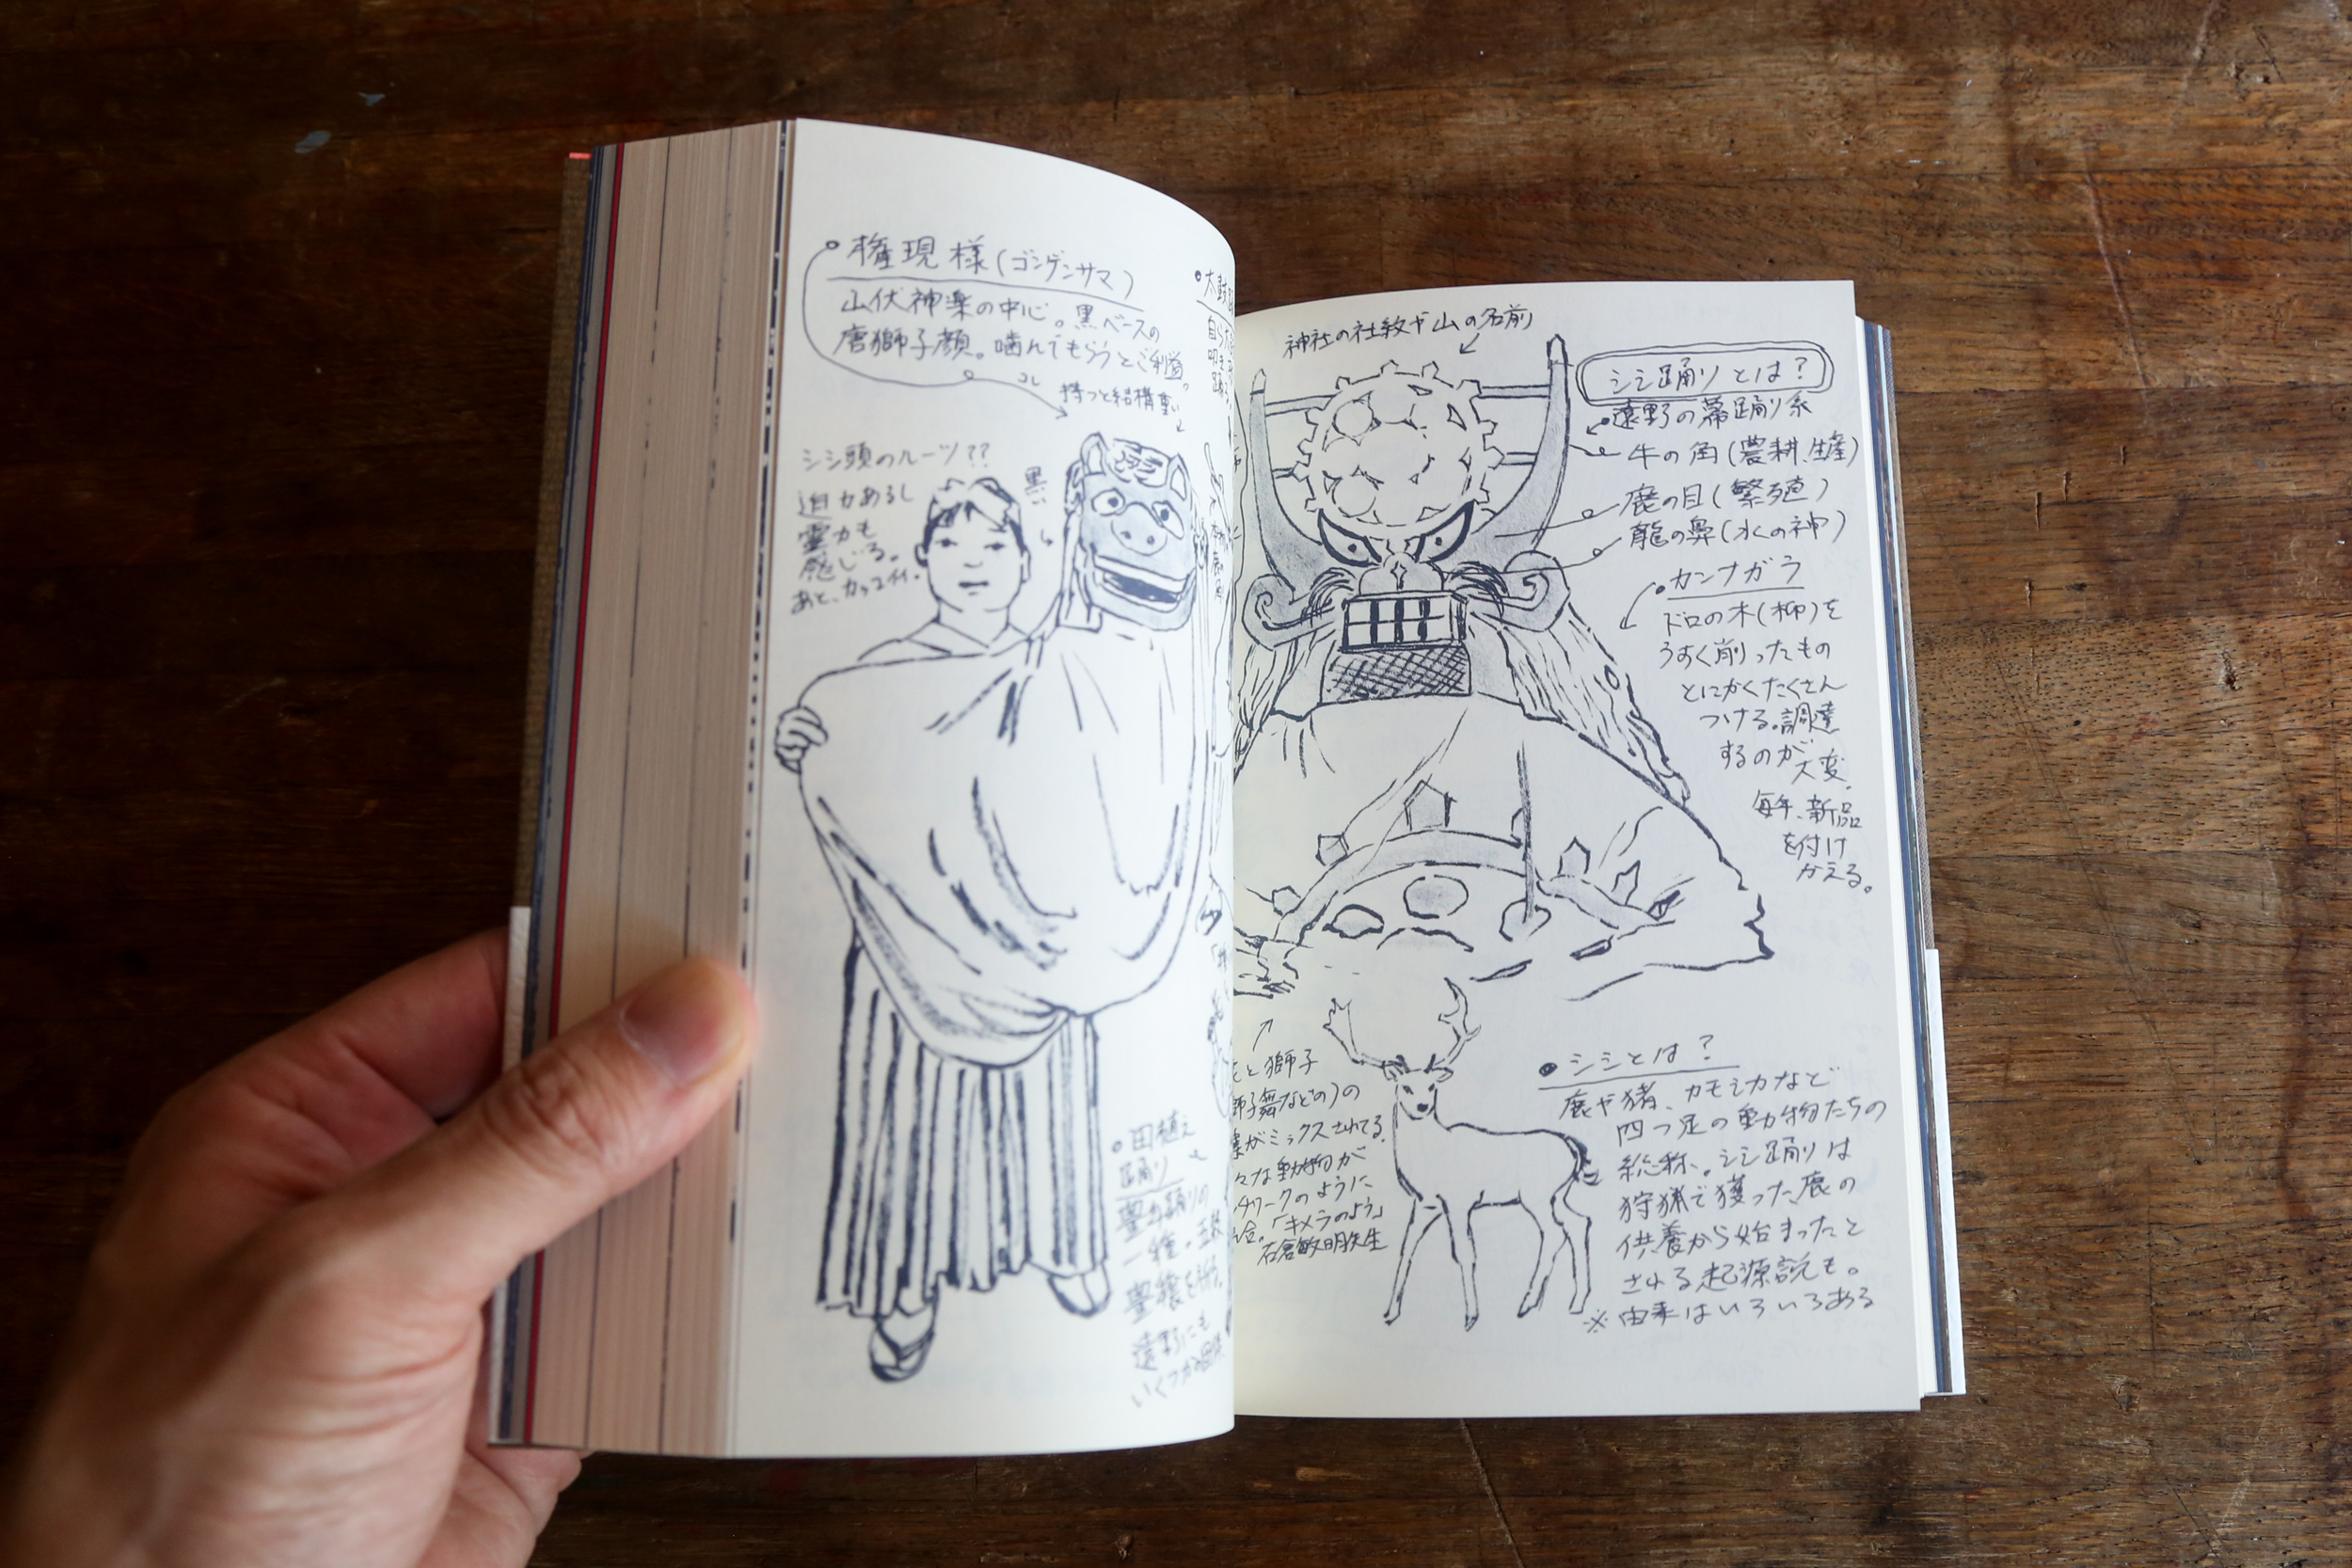 権現様(ゴンゲンサマ)
山伏神楽の中心。黒ベースの
唐獅子顔。噛んでもらうとご利益。
コレ
持つと結構重い
シシ頭のルーツ??
迫力あるし
霊力も
感じる。
あと、カッコイイ。
黒い
田植え
踊り
豊年踊りの
一種。五穀
豊穣を祈る。
遠野にも
いくつかの団体
太鼓
自ら
叩き
踊
神社の社紋や山の名前
シシ踊りとは?
遠野の幕踊り系
牛の角(農耕、生産)
鹿の目(繁殖)
龍の鼻(水の神)
カンナガラ
ドロの木(柳)を
うすく削ったもの
とにかくたくさん
つける。調達
するのが大変。
毎年、新品
を付け
かえる。
と獅子
獅子舞などの)の
素がミックスされてる。
々な動物が
ッチワークのように
合。「キメラのよう」
石倉敏明先生
シシとは?
鹿や猪、カモシカなど
四つ足の動物たちの
総称。シシ踊りは
狩猟で獲った鹿の
供養から始まったと
される起源説も。
※由来はいろいろある